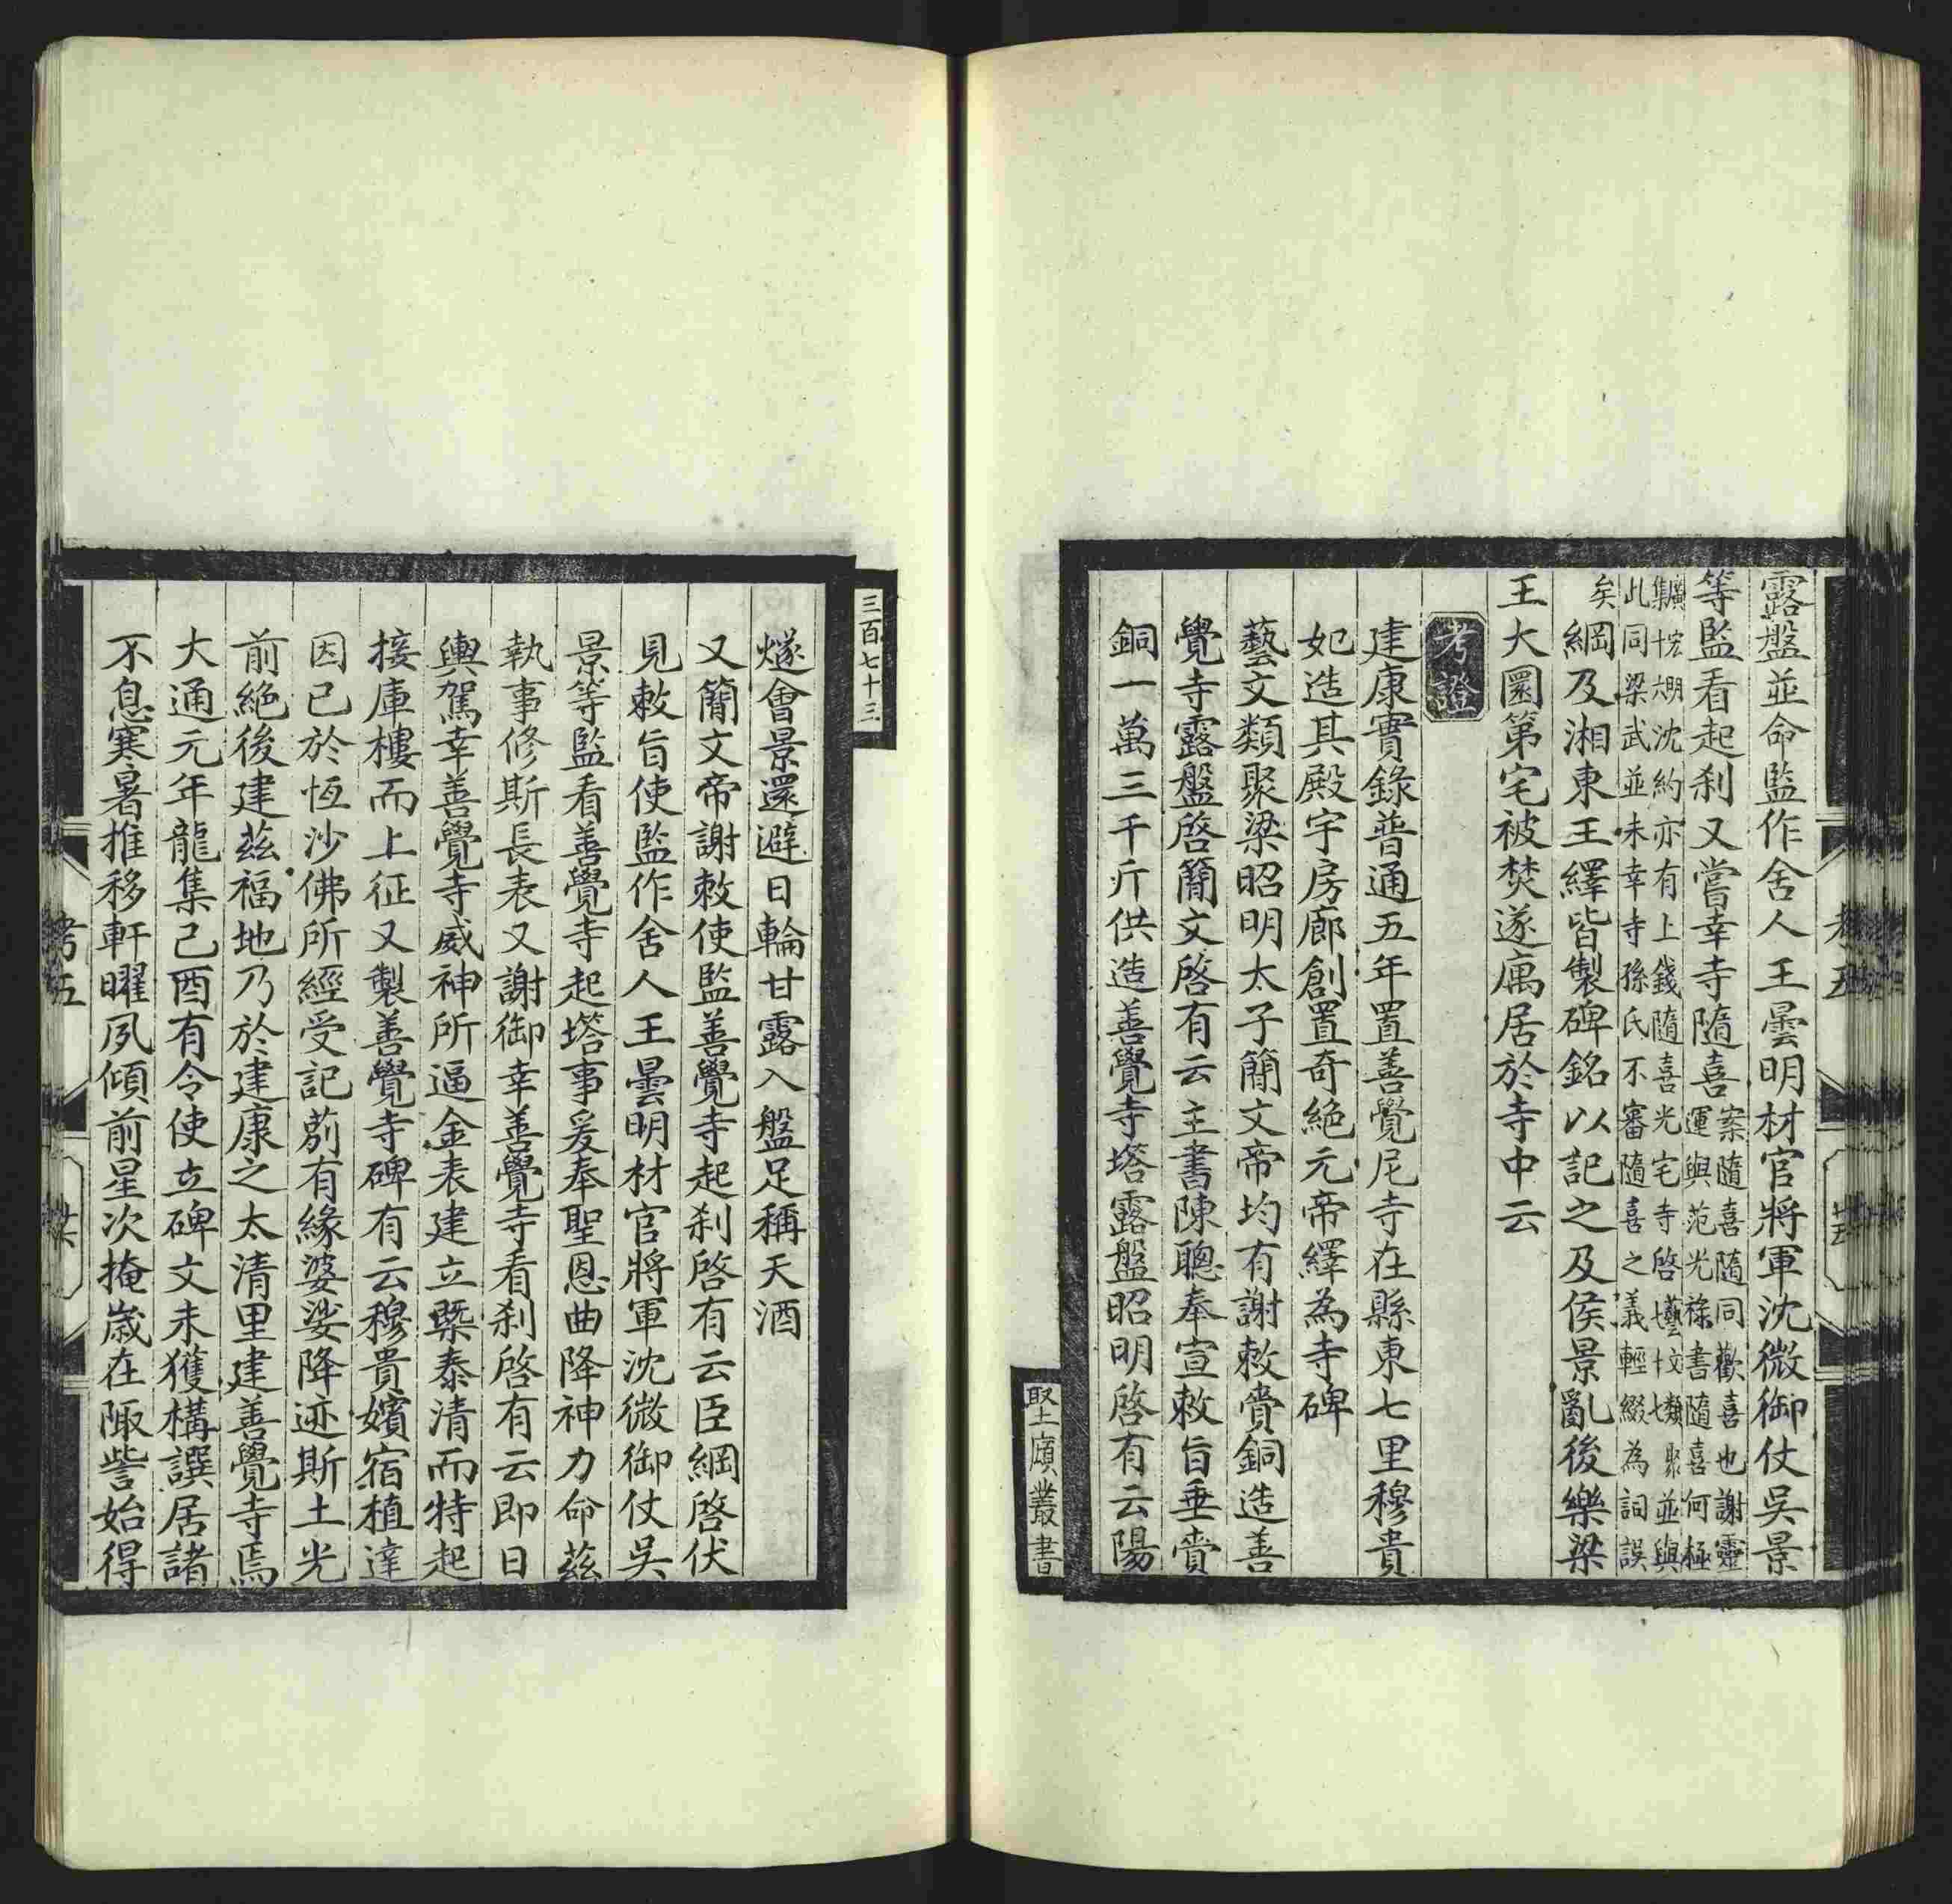 露盤並命監作舍人王曇明材官將軍沈微御仗吳景
等監看起刹又嘗幸寺隨喜案隨喜隨同歡喜也謝靈
運與范光祿書隨喜何極
廣宏明
集十六沈約亦有上錢隨喜光宅寺啓藝文類
聚七十七並與
此同梁武並未幸寺孫氏不審隨喜之義輕綴為詞誤
矣綱及湘東王繹皆製碑銘以記之及侯景亂後樂梁
王大圜第宅被焚遂寓居於寺中云
考證
建康實錄普通五年置善覺尼寺在縣東七里穆貴
妃造其殿宇房廊創置奇絕元帝繹為寺碑
藝文類聚梁昭明太子簡文帝均有謝敕賚銅造善
覺寺露盤啓簡文啓有云主書陳聰奉宣敕旨垂賚
銅一萬三千斤供造善覺寺塔露盤昭明啓有云陽
考五
廿五
堅匏叢書
三百七十三
燧會景還避日輪甘露入盤足稱天酒
又簡文帝謝敕使監善覺寺起刹啓有云臣綱啓伏
見敕旨使監作舍人王曇明材官將軍沈微御仗吳
景等監看善覺寺起塔事爰奉聖恩曲降神力命茲
執事修斯長表又謝御幸善覺寺看刹啓有云即日
輿駕幸善覺寺威神所逼金表建立槩泰清而特起
接庫樓而上征又製善覺寺碑有云穆貴嬪宿植達
因已於恆沙佛所經受記莂有緣婆娑降迹斯土光
前絕後建茲福地乃於建康之太清里建善覺寺焉
大通元年龍集己酉有令使立碑文未獲構譔居諸
不息寒暑推移軒曜夙傾前星次掩歲在陬訾始得
考五
廿六